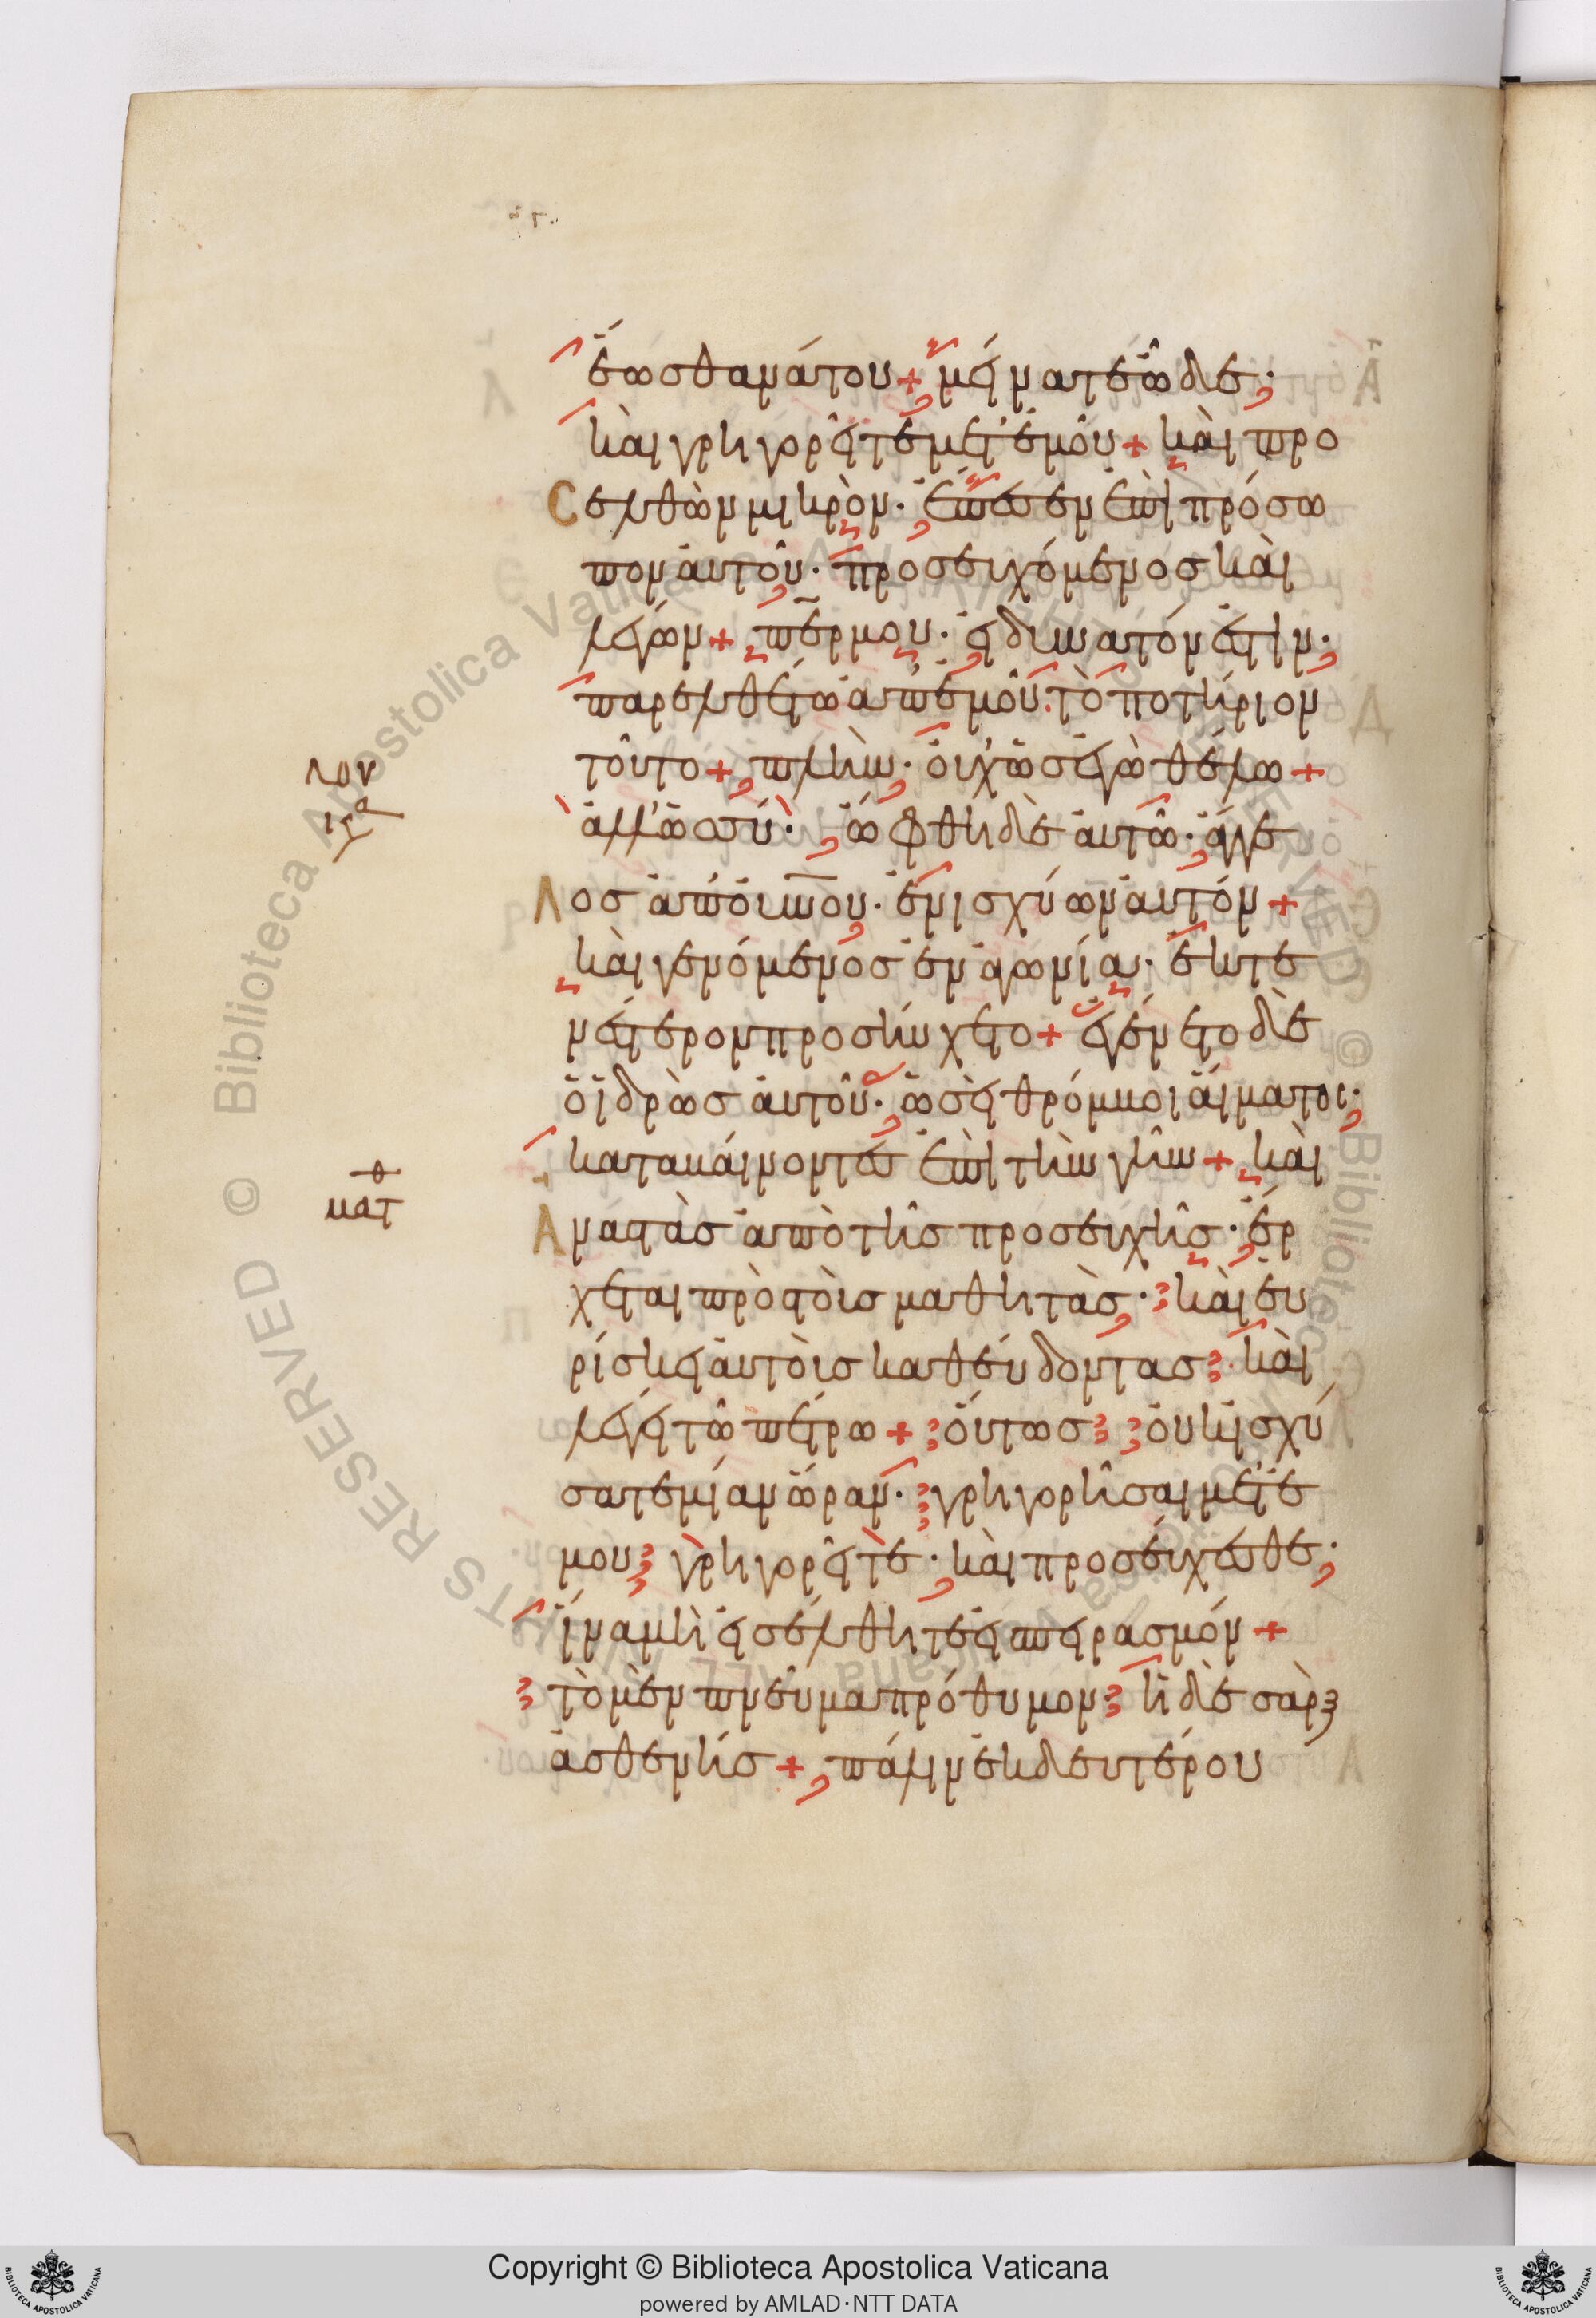 ἕως θανάτου + μείνατε ὧδε·
καὶ γρηγορεῖτε μετ' ἐμοῦ + καὶ προ
ελθὼν μικρὸν· ἔπεσεν ἐπὶ πρόσω
πον αὐτοῦ· προσευχόμενος καὶ
λέγων + περ μου· εἰ δυνατόν ἐστιν·
παρελθέτω ἀπ' ἐμοῦ τὸ ποτήριον
τοῦτο + πλὴν· οὐχ' ὡς ἐγὼ θέλω +
ἀλλ' ὡς σύ· ὤφθη δὲ αὐτῶ· ἄγγε
λος ἀπ' οὐνου· ἐνισχύων αὐτόν +
καὶ γενόμενος ἐν ἀγωνία· ἐκτε
νέστερον προσηύχετο + ἐγένετο δὲ
ὁ ἱδρὼς αὐτοῦ· ὡσεὶ θρόμβοι αἵματος·
καταβαίνοντες ἐπὶ τὴν γῆν + καὶ
ἀναστὰς ἀπὸ τῆς προσευχῆς· ἔρ
χεται πρὸς τοὺς μαθητὰς· καὶ εὑ
ρίσκει αὐτοὺς καθεύδοντας· καὶ
λέγει τῶ πέτρω + οὕτως οὐκ ἰσχύ
σατε μίαν ὥραν· γρηγορῆσαι μετ' ἐ
μου γρηγορεῖτε· καὶ προσεύχεσθε·
ἵνα μὴ εἰσέλθητε εἰς πειρασμόν +
τὸ μὲν πνεῦμα πρόθυμον ἡ δὲ σὰρξ
ἀσθενής + πάλιν ἐκ δευτέρου
λου
ματ
© Biblioteca Apostolica Vaticana ALL RIGHTS RESERVED
Copyright © Biblioteca Apostolica Vaticana
powered by AMLAD·NTT DATA
BIBLIOTECA APOSTOLICA VATICANA
BIBLIOTECA APOSTOLICA VATICANA